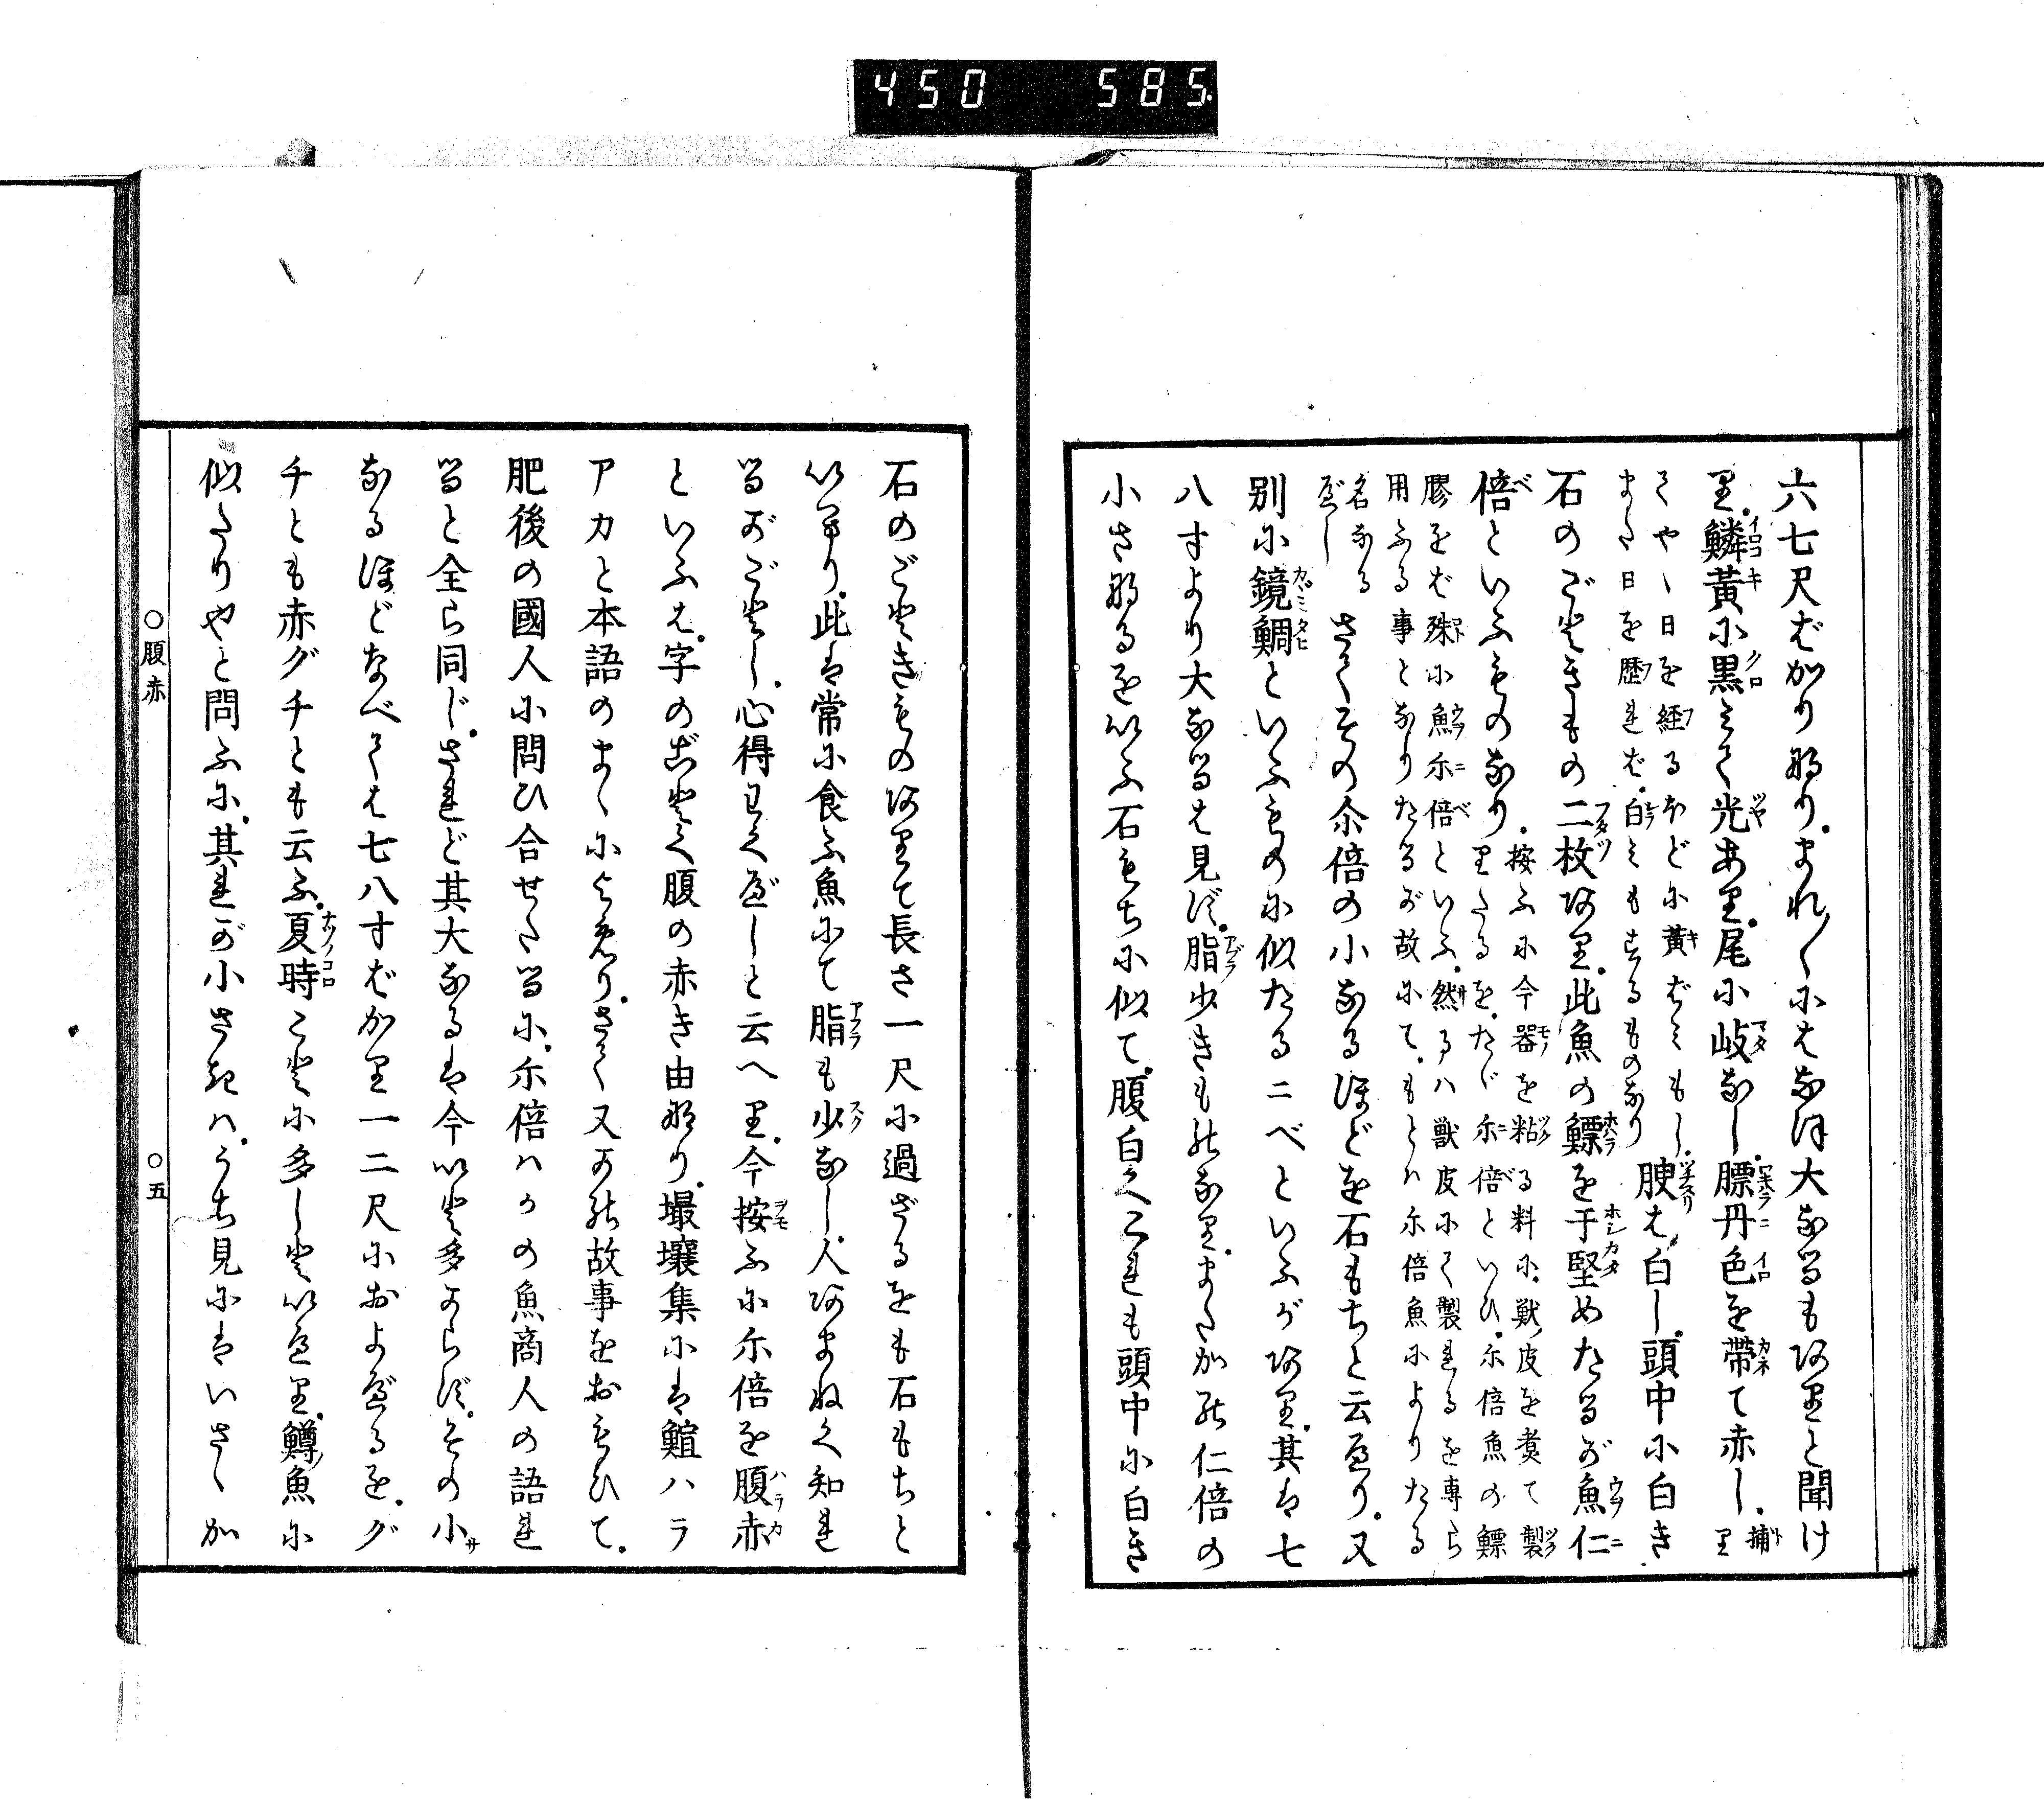 450 585
六七尺ばかり那り。まれ〳〵にはなほ大なるも阿りと聞け
り。鱗黄に黒みて光あり。尾に岐なし。膘丹色を帯て赤し。捕り
てやゝ日を経るほどに黄ばみもし。
また日を歴れば。白みもするものなり
腴は白し。頭中に白き
石のごときもの二枚阿り。此魚の鰾を于堅めたるが魚仁
倍といふものなり。
按ふに今器を粘る料に。獣皮を煑て製
りたるを。たゞ尓倍といひ。尓倍魚の鰾
膠をば殊に魚尓倍といふ。然るハ獣皮にて製れるを専ら
用ふる事となりたるが故にて。もとハ尓倍魚によりたる
名なる
べし
さてその尒倍の小なるほどを石もちと云へり。又
别に鏡鯛といふものに似たるニべといふが阿り。其は七
八寸より大なるは見ず。脂少きも能なり。またか能仁倍の
小さ那るをいふ石もちに似て。腹白くこれも頭中に白き
石のごときもの阿りて長さ一尺に過ざるをも石もちと
いへり。此は常に食ふ魚にて脂も少なし。人阿まねく知れ
るがごとし。心得わくべしと云へり。今按ふに尓倍を腹赤
といふは。字のごとく腹の赤き由那り。撮壤集には鰚ハラ
アカと本語のまゝによめり。さて又可能故事をおもひて。
肥後の國人に問ひ合せたるに。尓倍ハかの魚商人の語れ
ると全ら同じ。されど其大なるは今いと多からず。その小
なるほどなべては七八寸ばかり一二尺におよべるを。グ
チとも赤グチとも云ふ。夏時ことに多しといへり。鱒魚に
似たりやと問ふに。其れが小さきハ。うち見にはいさゝか
○腹赤
○五